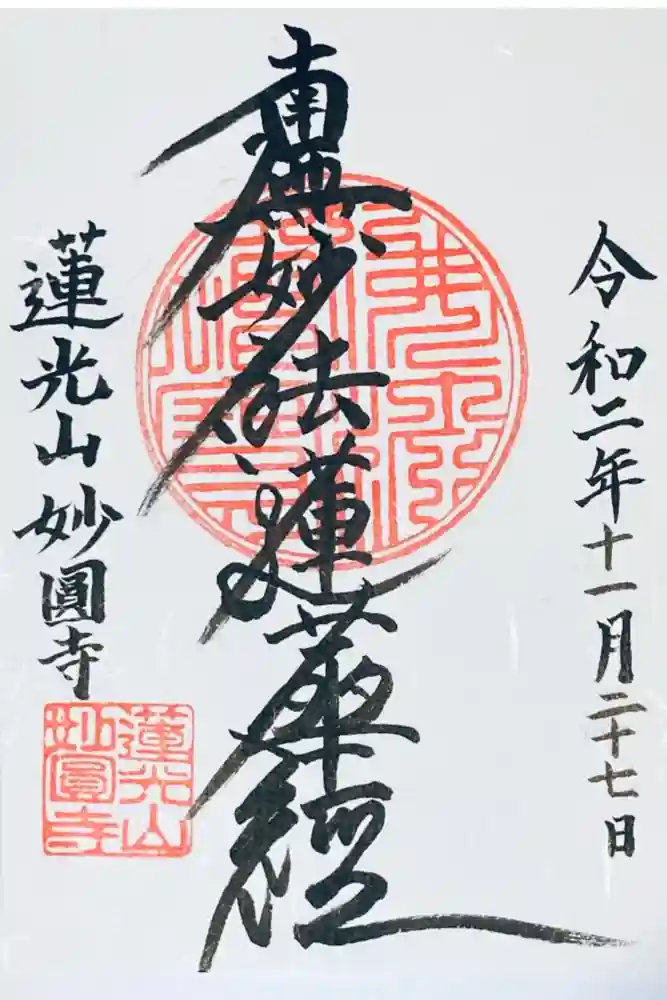 令和二年十一月二十七日
南無妙法蓮華経
蓮光山妙圓寺
蓮光山
妙圓寺